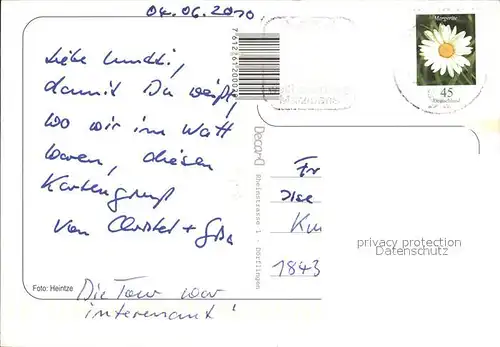 04.06.2010
Liebe
damit Du weißt,
wo wir im Watt
waren, diesen
Kartengruß
von Christel +
Die Tour war
interessant!
Foto: Heintze
7612612002
Decord
Rheinstrasse 1 · Dörflingen
Margerite
45
Deutschland
Fr
Ilse
1843
privacy protection
Datenschutz